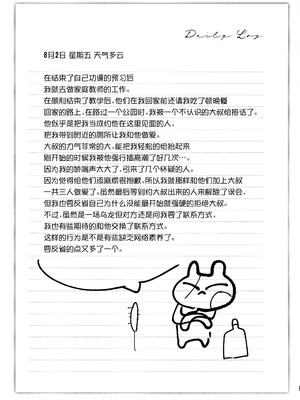 Daily Log
8月2日 星期五 天气多云
在结束了自己功课的预习后
我就去做家庭教师的工作。
在顺利结束了教学后,他们在我回家前还请我吃了顿晚餐
回家的路上、在路过一个公园时,我被一个不认识的大叔给拖话了。
他似乎是把我当成约他在这里见面的人、
把我带到附近的厕所让我和他做爱。
大叔的力气非常的大、能把我轻松的给抬起来
刚开始的时候我被他强行插高潮了好几次…。
因为我的娇喘声太大了、引来了几个怀疑的人。
因为觉得给他们添麻烦很抱歉,所以我就那样和他们加上大叔
一共三人做爱了。虽然最后等到约大叔出来的人来解除了误会、
但我也要反省自己为什么没能最开始就强硬的拒绝大叔。
不过,虽然是一场乌龙但对方还是问我要了联系方式、
我也有些期待的和他交换了联系方式。
这样的行为是不是有些缺乏网络素养了。
要反省的点又多了一个。